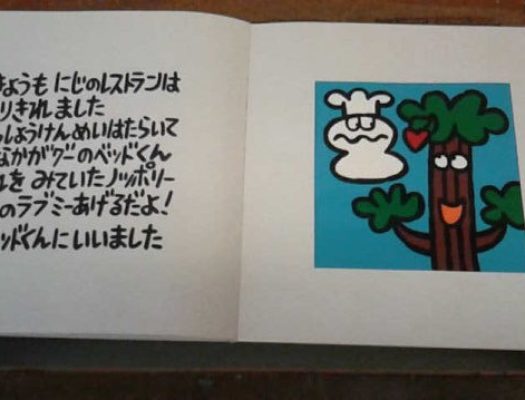 きょうも にじのレストランは
りきれました
っしょうけんめいはたらいて
なかがグーのベッドくん
を みていたノッポリー
のラブミーあげるだよ!
ッドくんにいいました